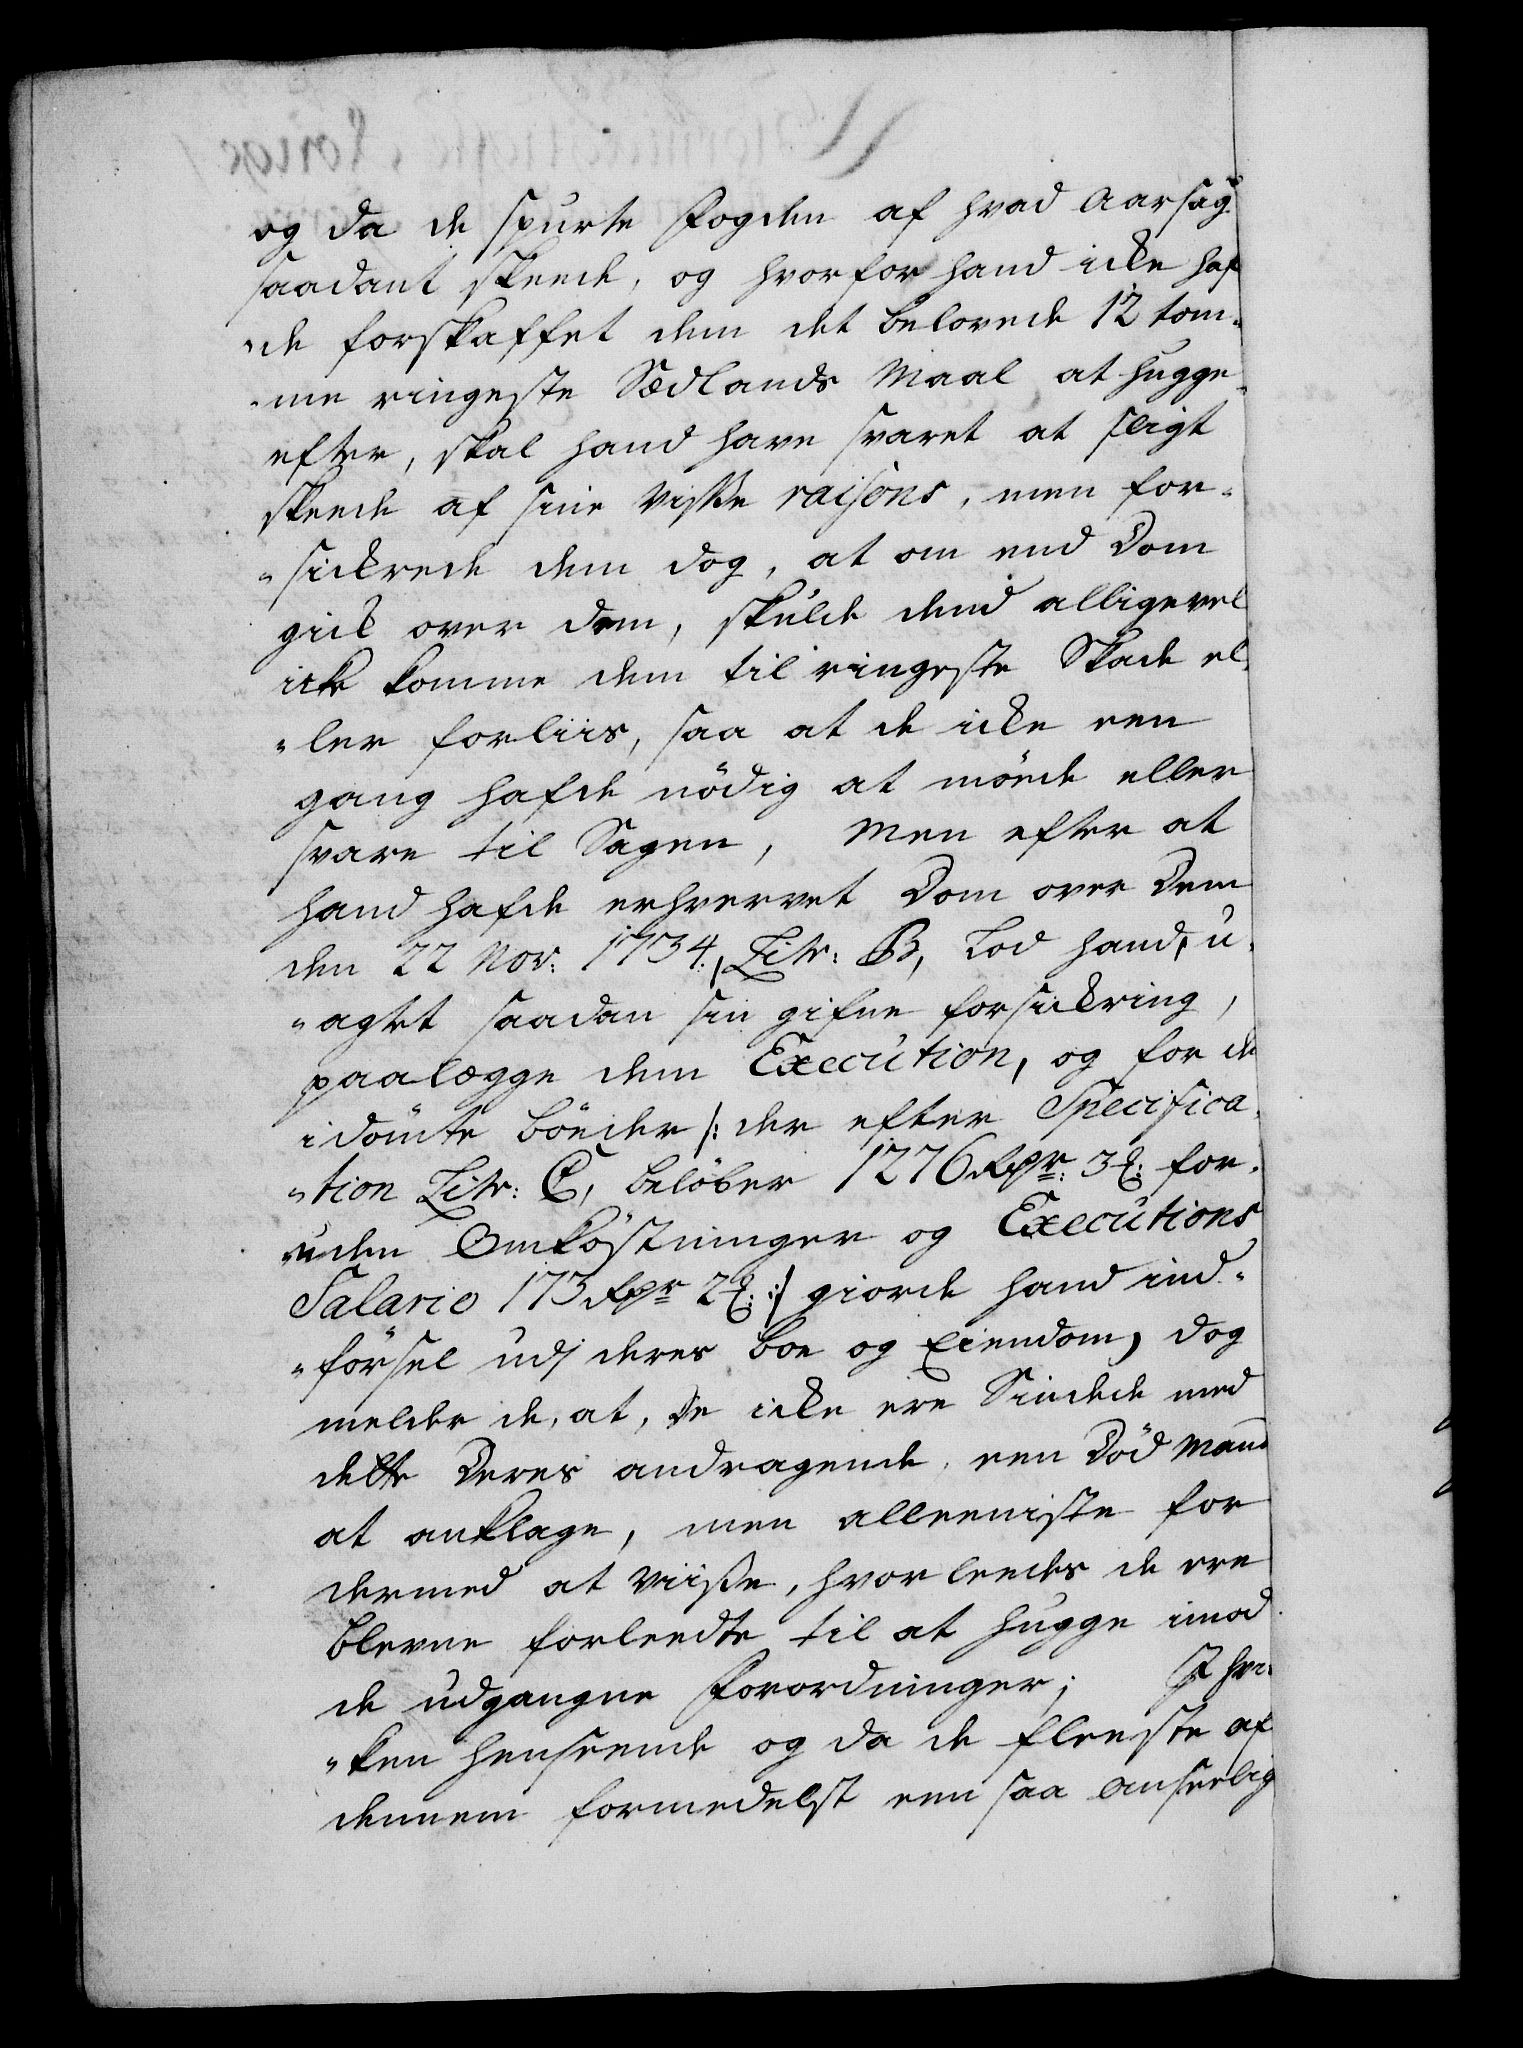 og da de spurte Fogden af hvad Aarsag
saadant skeede, og hvorfor hand icke haf
"de forskaffet dem det belovede 12 tom-
"me ringeste Sædlands Maal at hugge
efter, skal hand have svaret at sligt
skeede af sine visße raisons, men for-
"sickrede dem dog, at om end Dom
gick over dem, skulde dend alligevel
icke komme dem til ringeste Skade el
"ler forliis, saa at de icke een
gang hafde nödig at möede eller
svare til Sagen, Men efter at
hand hafde erhvervet Dom over Dem
den 22 Nov: 1734, Litr: B, Lod hand, u-
"agtet saadan sin gifne forsickring,
paalegge dem Execution, og for de
idömte böeder /: der efter Specifica-
"tion Litr: C, beløber 1276 Rdr: 3 : for-
uden Omköstninger og Executions
Salario 173 Rdr 2 : :/ giorde hand ind-
"försel udj deres boe og Eiendom, dog
melder de, at, de icke ere Sindede med
dette Deres andragende, een Död Mand
at anklage, men alleeniste for
dermed at viiße, hvorleedes de ere
blevne forleedte til at hugge imod
de udgangne Forordninger; I hvil
"ken henseende og da de fleeste af
dennem formedelst een saa anseelig